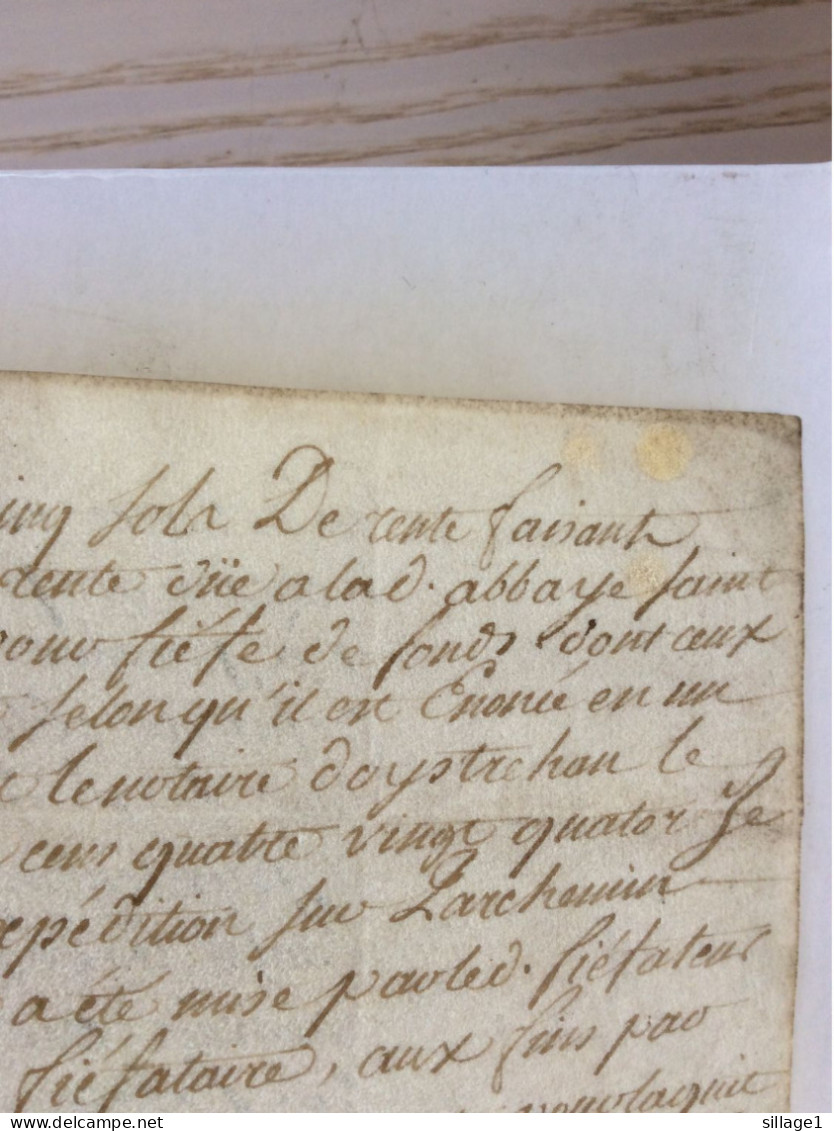 inq sols De rente faisant
rente düe a lad. abbaye saint
pour fiéfe de fonds dont ceux
selon qu'il est Enoncé en un
le notaire d'oystrehan le
cens quatre vingt quatorze
expédition sur Parchemin
a été mise par led. fiéfateur
fiéfataire, aux fins par
pour lacquit
sillage1